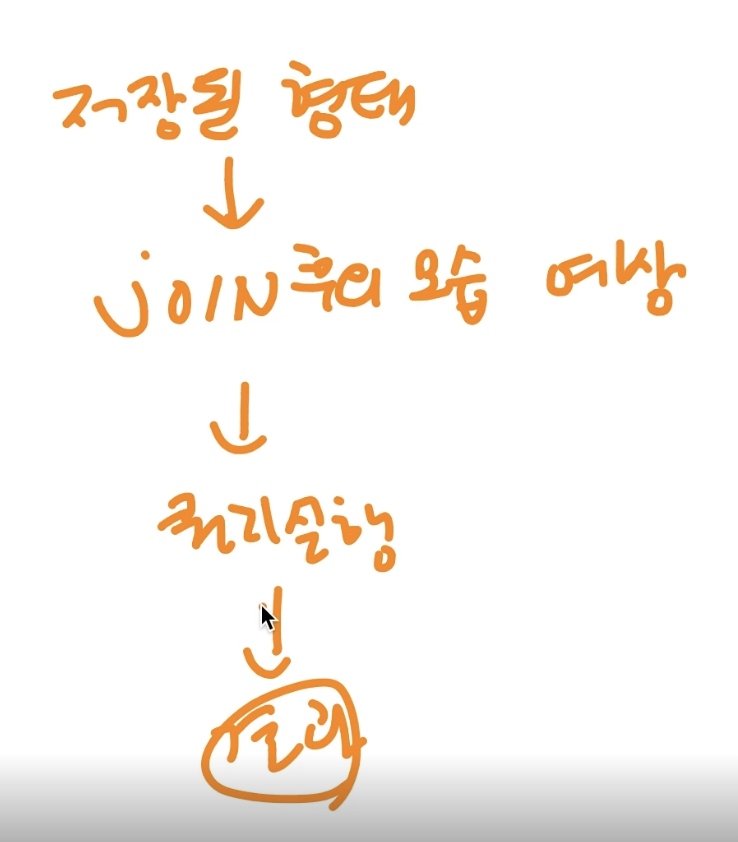 저장될 형태
JOIN후의 모습 예상
쿼리실행
결과